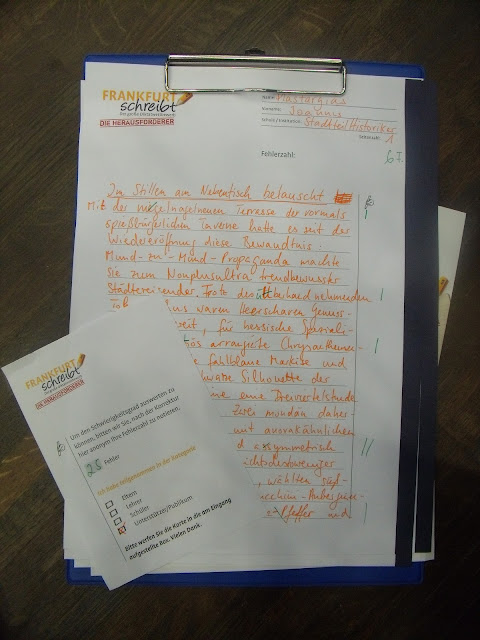 FRANKFURT
schreibt
Der große Diktatwettbewerb
DIE HERAUSFORDERER
Name: Mastorhias
Vorname: Joannus
Schule / Institution: Stadtteilhistoriker
Seitenzahl:
1
Fehlerzahl:
6 F.
Im Stillen am Nebentisch belauscht
Mit der nigelnagelneuen Terrasse der vormals
spießbürgerlichen Taverne hatte es seit der
Wiedereröffnung diese Bewandtnis:
Mund-zu-Mund-Propaganda machte
Sie zum Nonplusultra trendbewusster
Städtereisender. Trotz des überhandnehmenden
waren Heerscharen Genuss-
weit, für hessische Speziali-
ös arrangierte Chrysantheme-
e fahlblaue Markise und
schwarze Silhouette der
eine Dreiviertelstunde
zwei mondän daher-
mit avocadoähnlichem
d asymmetrisch
ichtsdestoweniger
, wählten süd-
Pfeffer und
FRANKFURT
schreibt
Der große Diktatwettbewerb
DIE HERAUSFORDERER
Um den Schwierigkeitsgrad auswerten zu
können, bitten wir Sie, nach der Korrektur
hier anonym Ihre Fehlerzahl zu notieren.
28 Fehler
Ich habe teilgenommen in der Kategorie
Eltern
Lehrer
Schüler
Unterstützer/Publikum
Bitte werfen Sie die Karte in die am Eingang
aufgestellte Box. Vielen Dank.